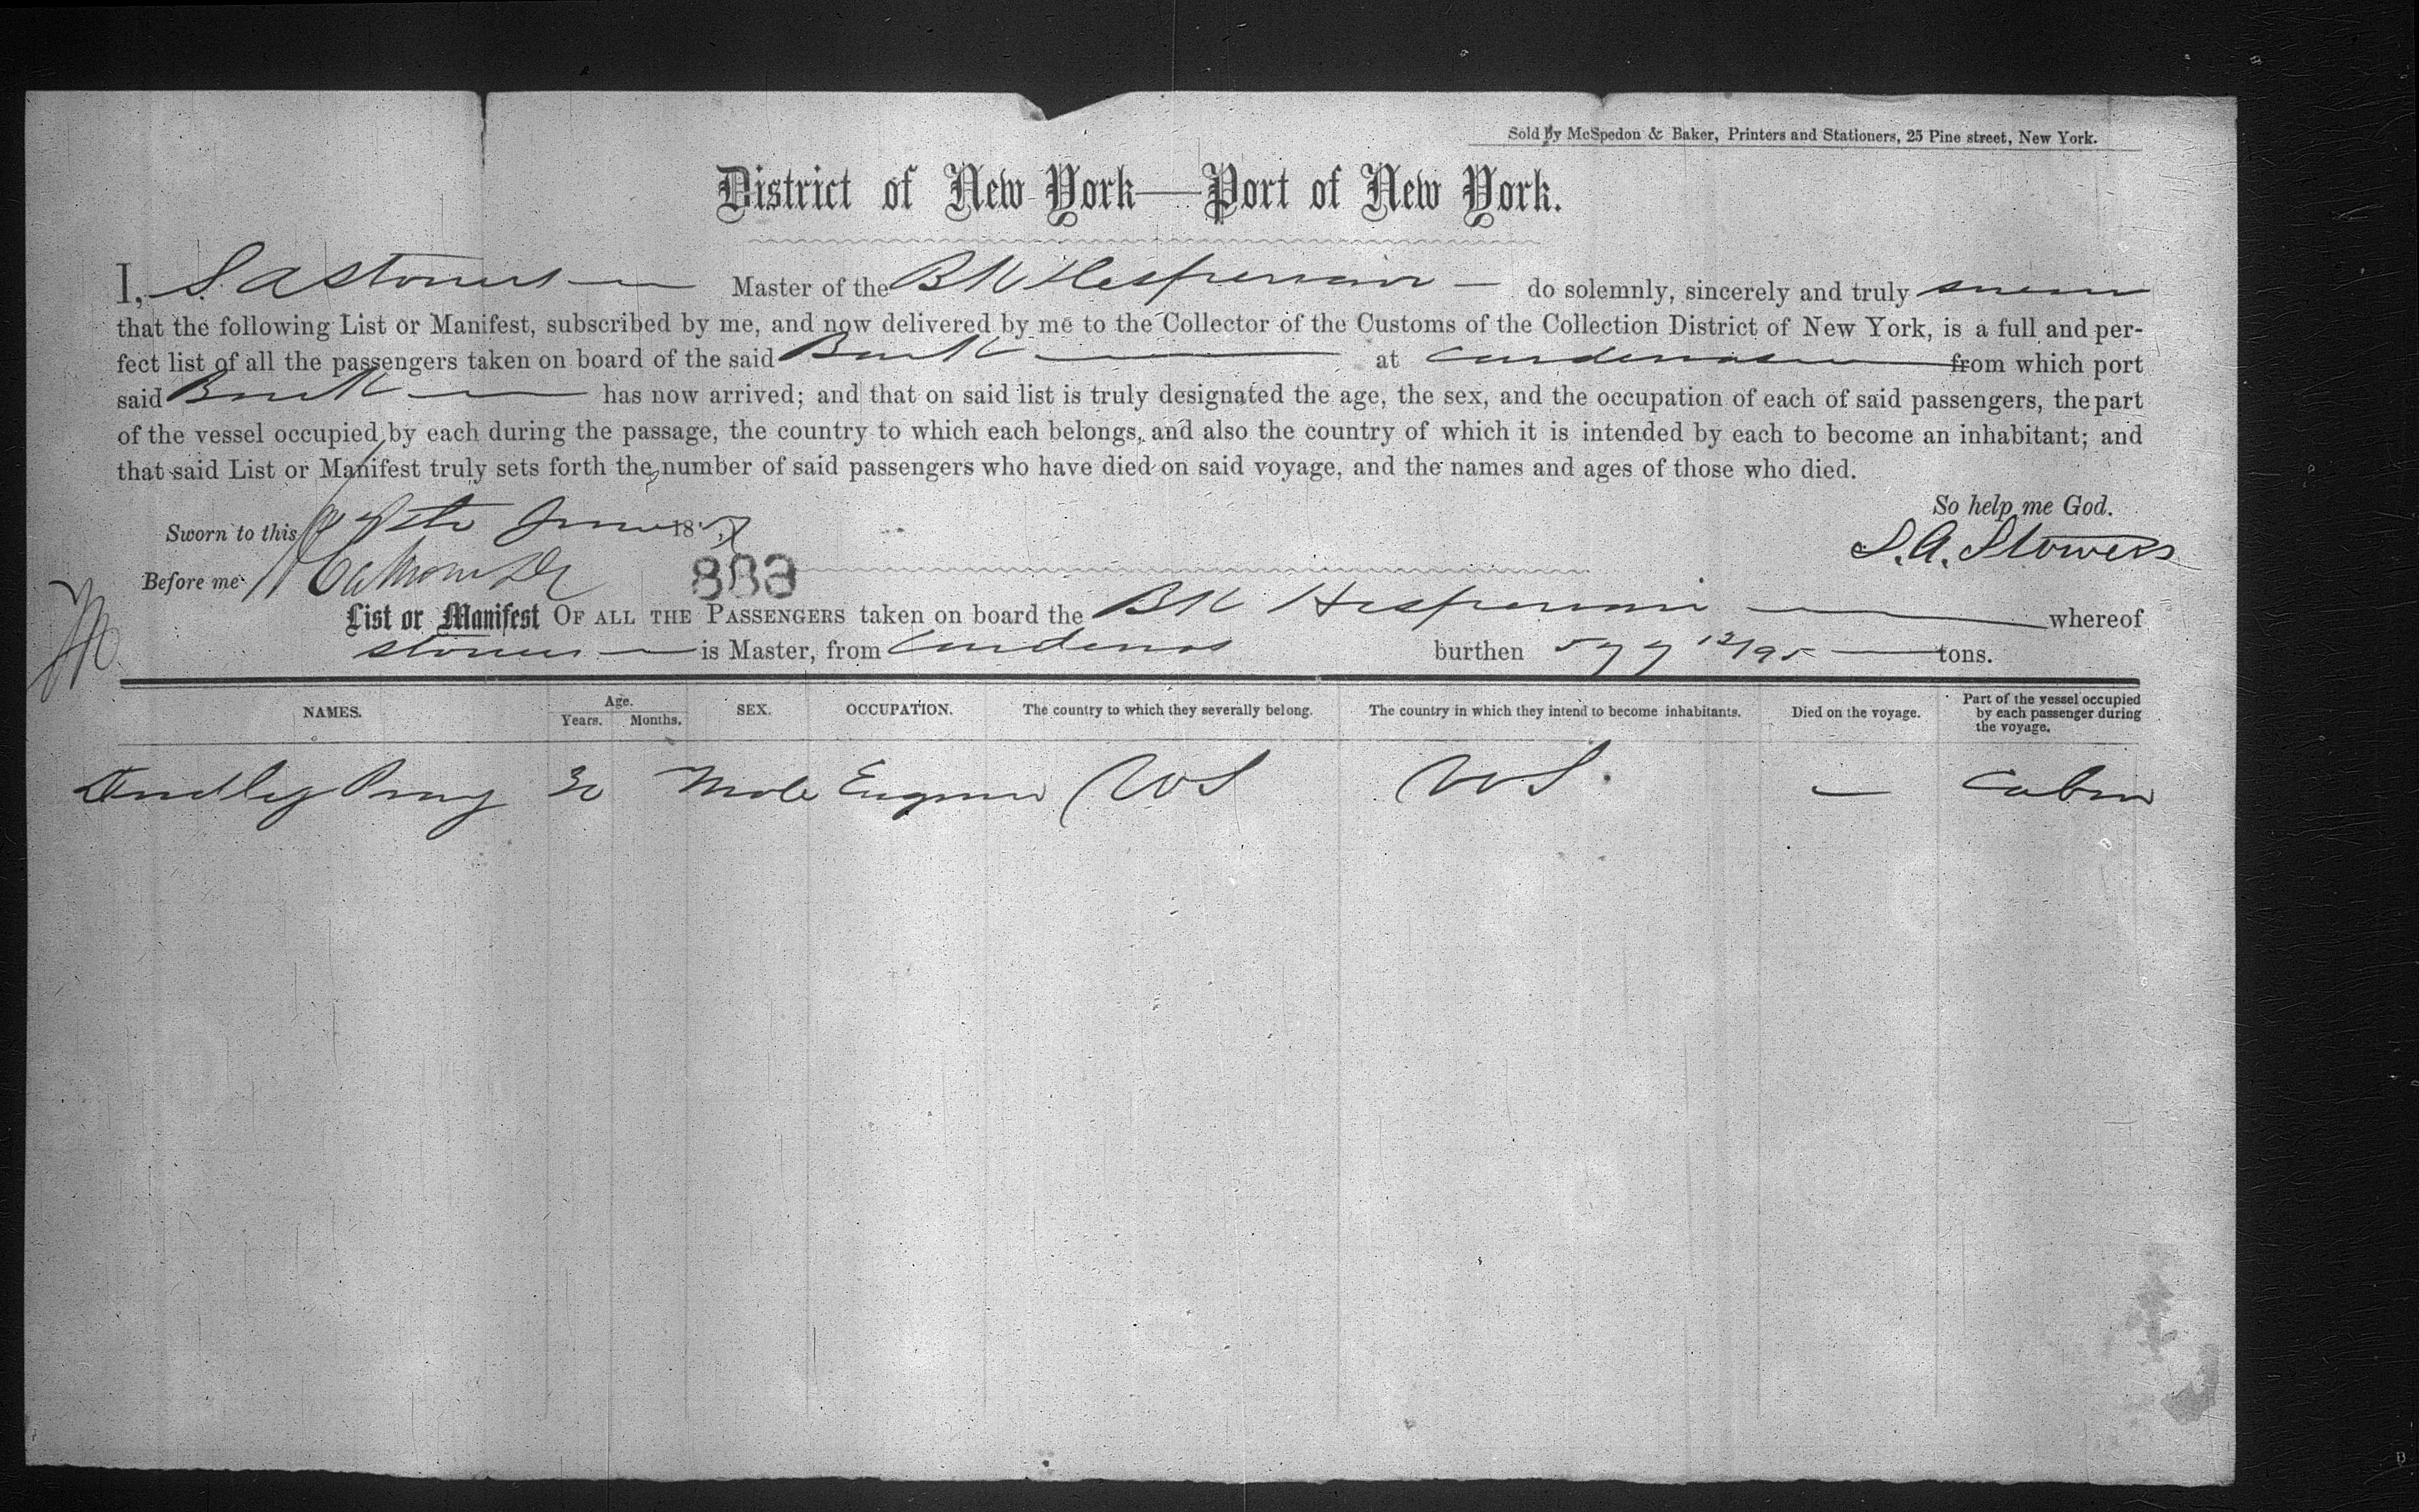 Sold by McSpedon & Baker, Printers and Stationers, 25 Pine street, New York.
District of New York—Port of New York.
I, S. A Stowers Master of the Bk Hesperian do solemnly, sincerely and truly swear
that the following List or Manifest, subscribed by me, and now delivered by me to the Collector of the Customs of the Collection District of New York, is a full and per-
fect list of all the passengers taken on board of the said Bark at Cardenas from which port
said Bark has now arrived; and that on said list is truly designated the age, the sex, and the occupation of each of said passengers, the part
of the vessel occupied by each during the passage, the country to which each belongs, and also the country of which it is intended by each to become an inhabitant; and
that said List or Manifest truly sets forth the number of said passengers who have died on said voyage, and the names and ages of those who died.
So help me God.
Sworn to this June 18
S. A. Stowers
Before me
List or Manifest OF ALL THE PASSENGERS taken on board the Bk Hesperian whereof
Stowers is Master, from Cardenas burthen 577 12/95 tons.
NAMES. Age. Years. Months. SEX. OCCUPATION. The country to which they severally belong. The country in which they intend to become inhabitants. Died on the voyage. Part of the vessel occupied by each passenger during the voyage.
Dudley 30 Male Engineer US US — Cabin